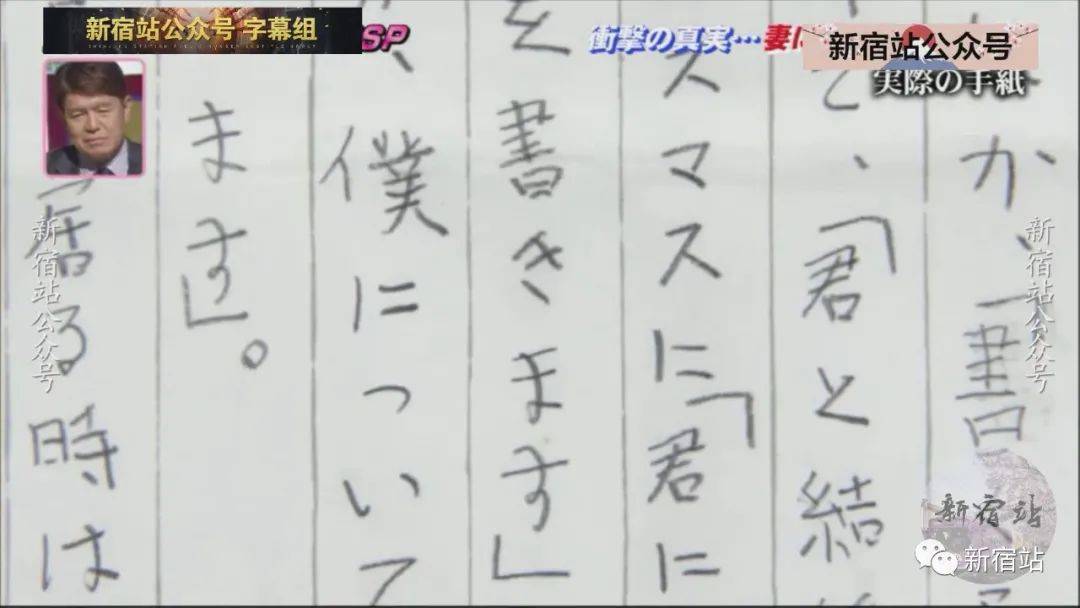 新宿站公众号 字幕组
SP
衝撃の真実…妻
新宿站公众号
実際の手紙
か、書
と、「君と結
スマスに「君に
を書きます」
僕について
ます」。
居る時は
新宿站公众号
新宿站公众号
新宿站
新宿站